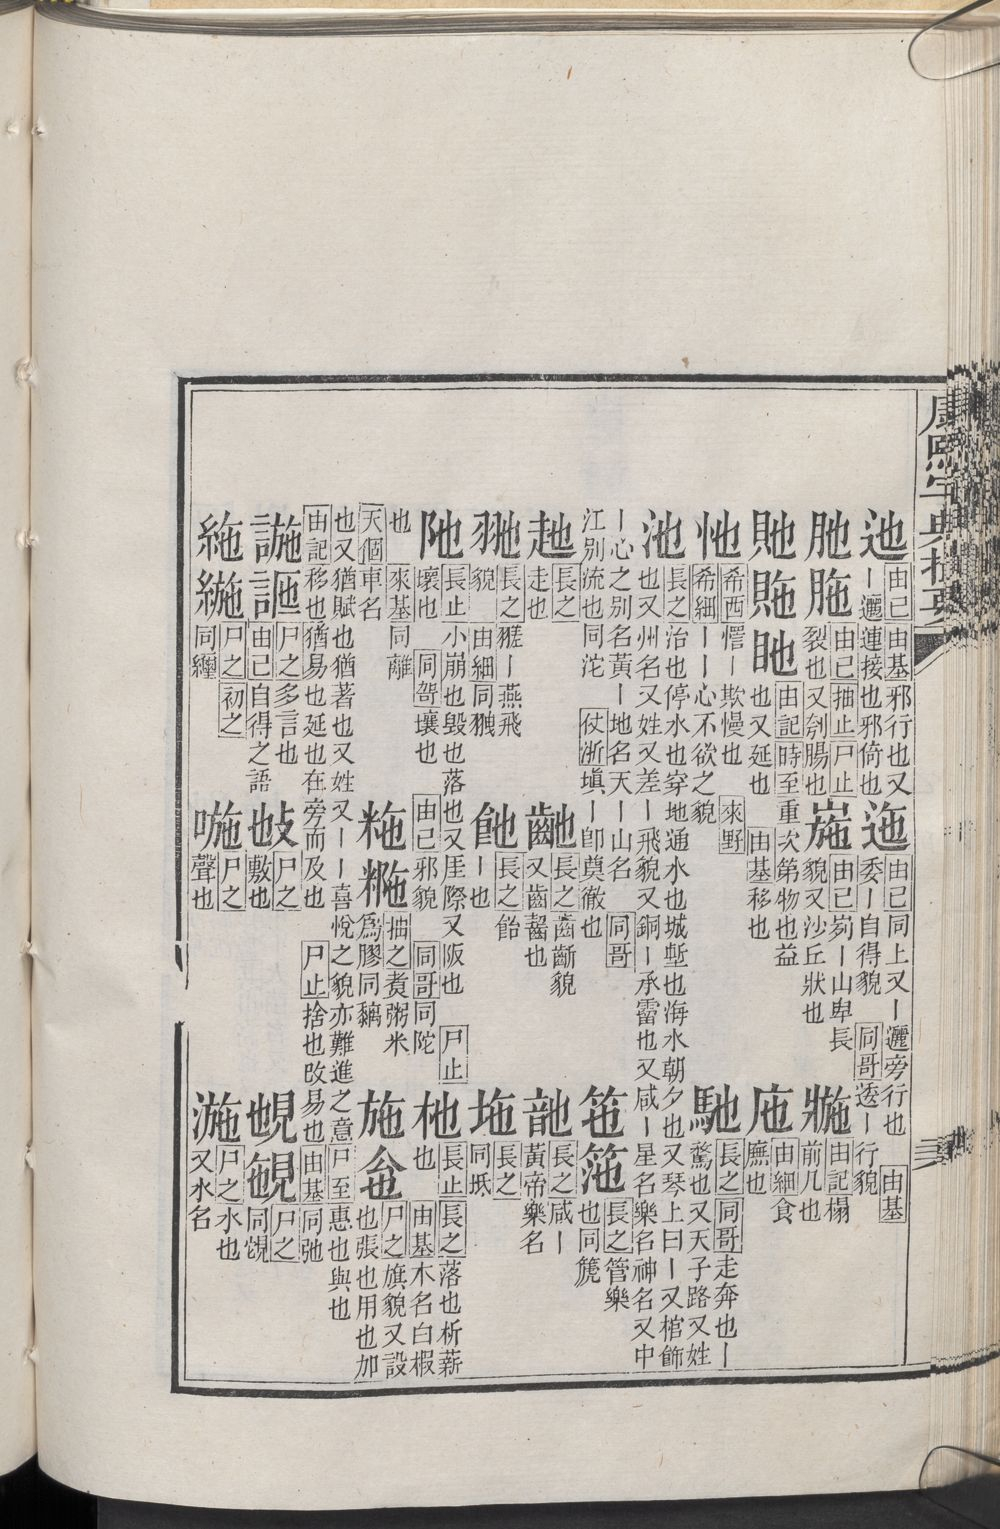 康熙字典撮要
迆 由己 由基 邪行也又丨邐連接也邪倚也
迤 由己 同上又丨邐旁行也委丨自得貌 同哥 逶丨行貌 由基
胣 肔 由己 抽止 尸止 裂也又刳腸也
崺 由己 峛丨山卑長貌又沙丘狀也
㸌 由記 榻前几也
貤 貤 由記 時至 重次第物也益也又延也 由基 移也
庉 由細 食廡也
忚 希西 㦒丨欺慢也 來野 希細 丨丨心不欲之貌
馳 長之 同哥 走奔也丨騖也又天子路又姓
池 長之 治也停水也穿地通水也城塹也海水朝夕也又琴上曰丨又棺飾也又州名又姓又差丨飛貌又銅丨承霤也又咸丨星名樂名神名又中丨心之別名黃丨地名天丨山名 同哥 江別流也同沱 仗浙 塡丨卽奠徹也
竾 箷 長之 管樂也同篪
䞄 長之 走也
齝 長之 齒斷貌又齒齧也
䪧 長之 咸丨黃帝樂名
䎈 長之 䍴丨燕飛貌 由細 同㹭
飿 長之 飴丨也
地 長之 同坻
阤 長止 小崩也毀也落也又厓際又阪也 尸止 壞也 同哿 壤也 由己 邪貌 同哥 同陀也 來基 同離
杝 長止 長之 落也析薪也 由基 木名白椵
天個 車名
粚 𥻆 抽之 煮粥米爲膠同黐
施 㒱 尸之 旗貌又設也張也用也加也又猶賦也猶著也又姓又丨丨喜悅之貌亦難進之意 尸至 惠也與也 由記 移也猶易也延也在旁而及也 尸止 捨也改易也 由基 同弛
詑 尸之 多言也 由己 自得之語
𢻫 尸之 敷也
覗 尸之 同覘
絁 纚 尸之 初之 同纚
㖷 尸之 聲也
湤 尸之 水也又水名
三